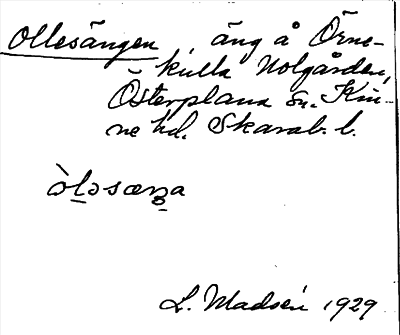 Ollesängen, äng å Örne-
kulla Nolgården,
Österplana sn. Kin-
ne hd. Skarab. l.
òl̠əsæŋ̠a
L. Madsén 1929